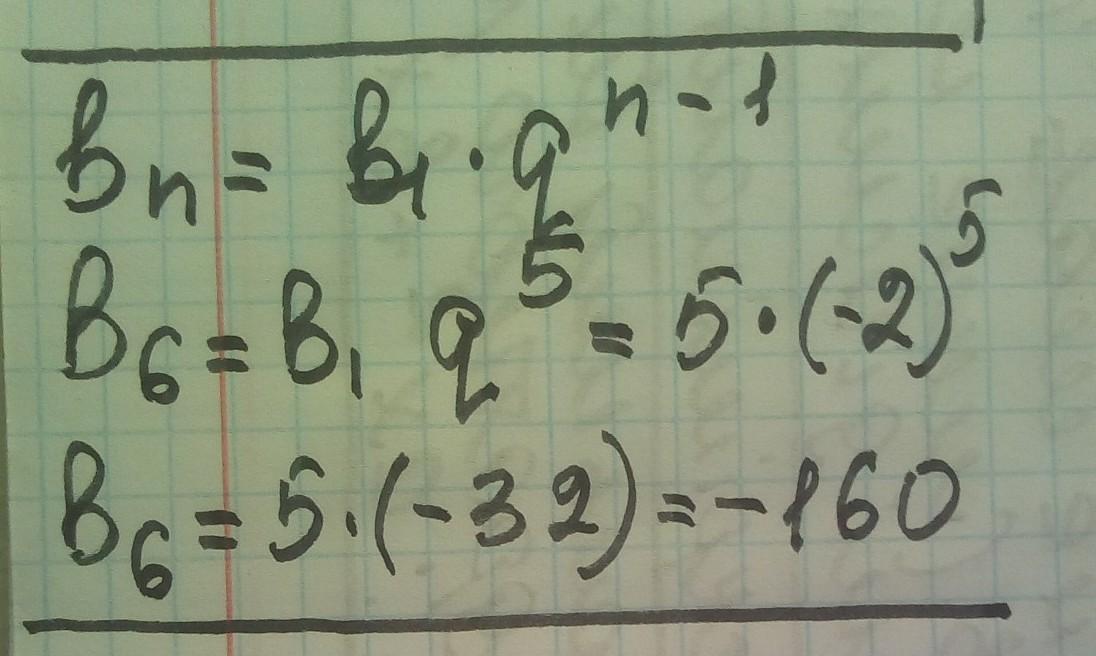 bₙ = b₁ · qⁿ⁻¹
B₆ = B₁ q⁵ = 5 · (-2)⁵
B₆ = 5 · (-32) = -160